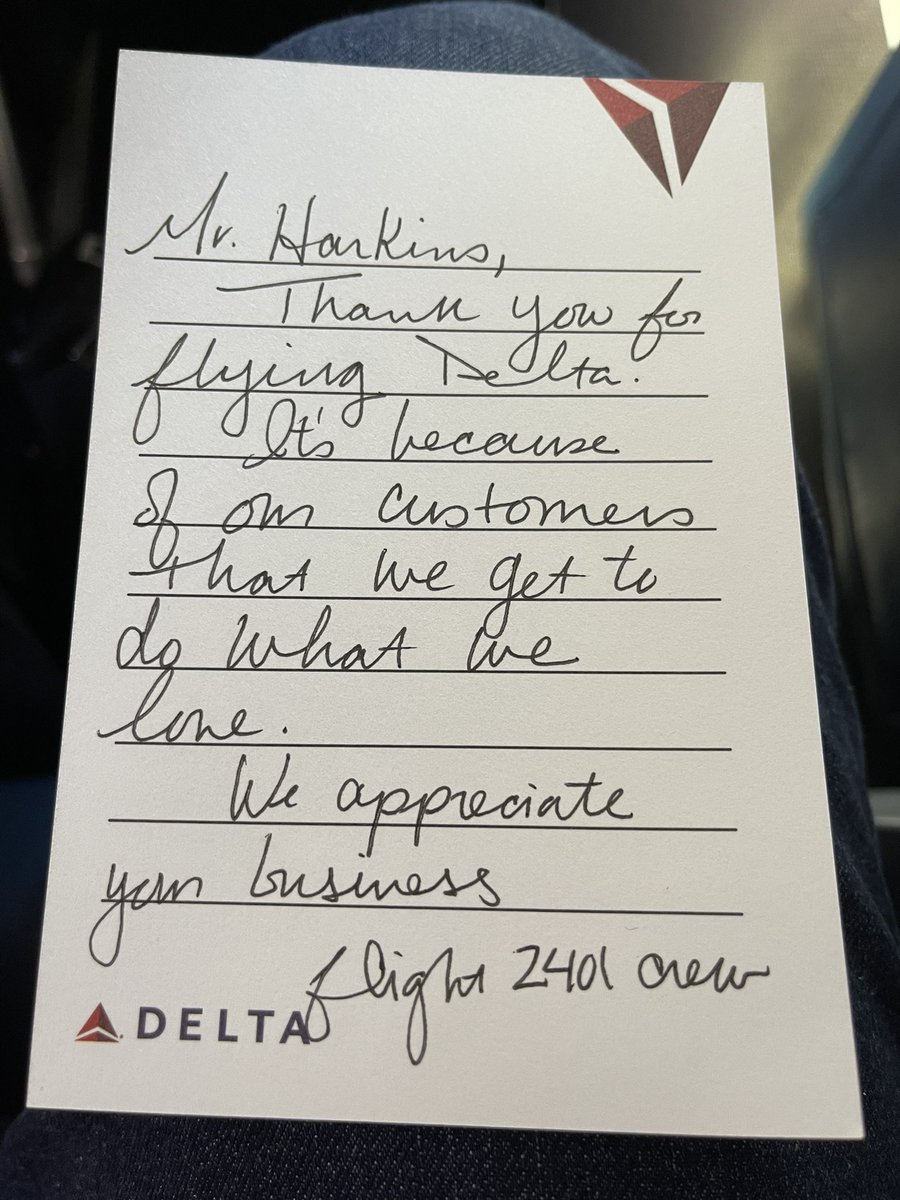 Mr. Harkins,
Thank you for
flying Delta.
It's because
of our customers
that we get to
do what we
love.
We appreciate
your business
flight 2401 crew
DELTA